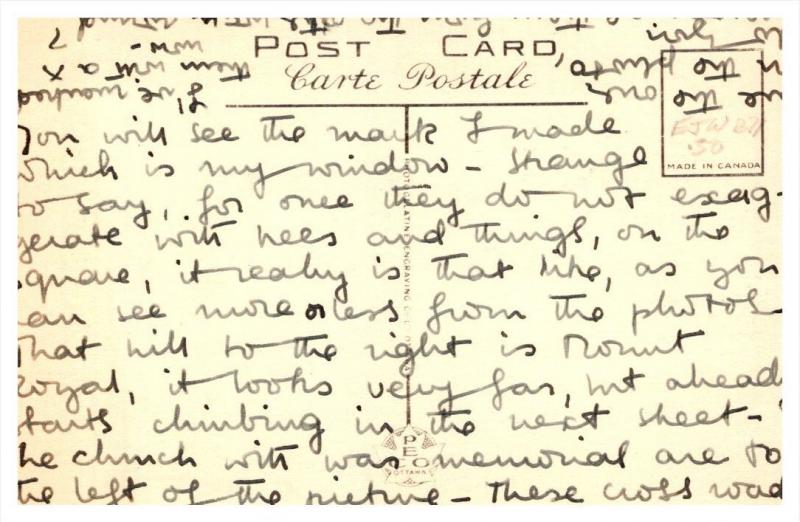 POST CARD
Carte Postale
You will see the mark I made
which is my window - strange
to say, for once they do not exag-
gerate with trees and things, on the
square, it really is that like, as you
can see more or less from the photos -
That hill to the right is Mount
Royal, it looks very far, but ahead
starts climbing in the next street -
the church with war memorial are to
the left of the picture - These cross road
MADE IN CANADA
EJW 271
.50
PHOTOGELATINE ENGRAVING CO. LTD. OTTAWA
PECO
OTTAWA
I've marked
them with a X